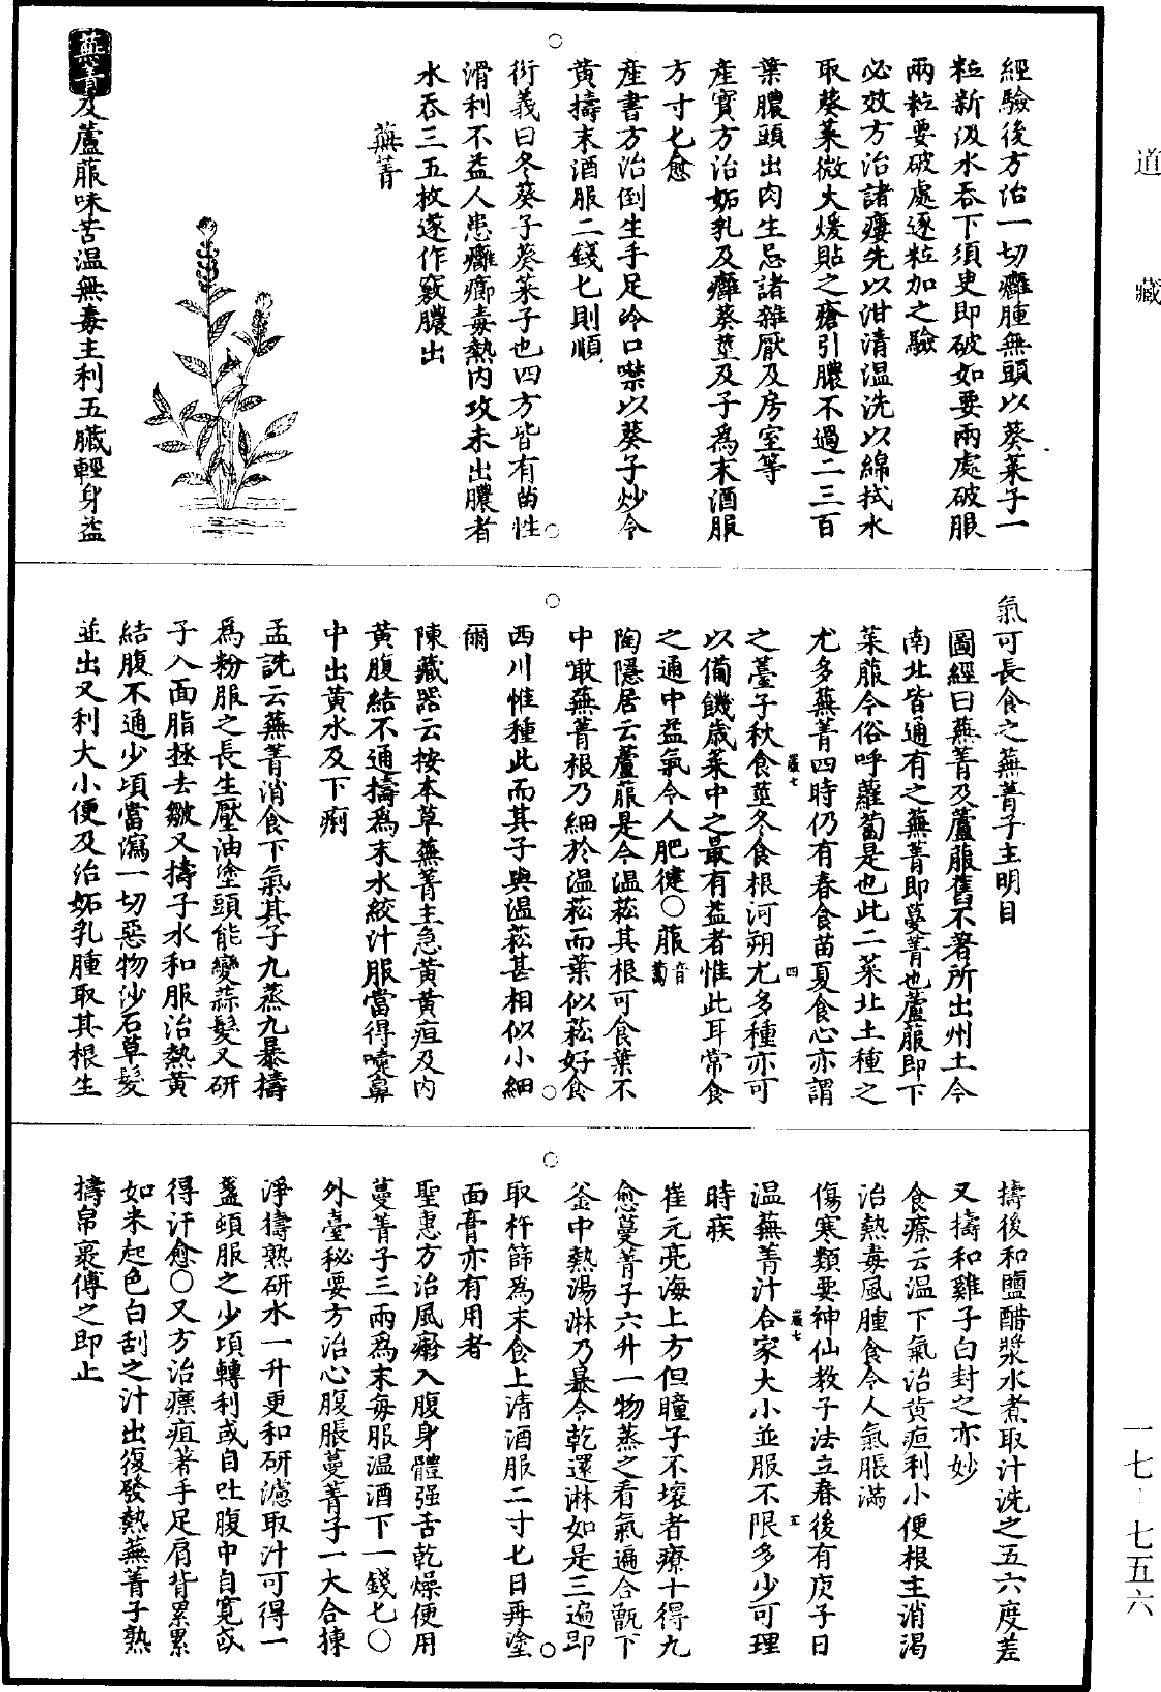 道藏
經驗後方治一切癰腫無頭以葵菜子一
粒新汲水吞下須臾即破如要兩處破服
兩粒要破處逐粒加之驗
必效方治諸瘻先以泔清温洗以綿拭水
取葵菜微火煖貼之瘡引膿不過二三百
葉膿頭出肉生忌諸雜厭及房室等
產寶方治妬乳及癰葵莖及子為末酒服
方寸匕愈
產書方治倒生手足冷口噤以葵子炒令
黃擣末酒服二錢匕則順
衍義曰冬葵子葵菜子也四方皆有苗性
滑利不益人患癰癤毒熱內攻未出膿者
水吞三五枚遂作竅膿出
蕪菁
蕪菁及蘆菔味苦温無毒主利五臟輕身益
氣可長食之蕪菁子主明目
圖經曰蕪菁及蘆菔舊不著所出州土今
南北皆通有之蕪菁即蔓菁也蘆菔即下
萊菔今俗呼蘿蔔是也此二菜北土種之
尤多蕪菁四時仍有春食苗夏食心亦謂
之薹子秋食莖冬食根河朔尤多種亦可
以備饑歲菜中之最有益者惟此耳常食
之通中益氣令人肥健○菔音蔔
陶隱居云蘆菔是今温菘其根可食葉不
中噉蕪菁根乃細於温菘而葉似菘好食
西川惟種此而其子與温菘甚相似小細
爾
陳藏器云按本草蕪菁主急黃黃疸及內
黃腹結不通擣為末水絞汁服當得嚏鼻
中出黃水及下痢
孟詵云蕪菁消食下氣其子九蒸九暴擣
為粉服之長生壓油塗頭能變蒜髮又研
子入面脂拯去皺又擣子水和服治熱黃
結腹不通少頃當瀉一切惡物沙石草髮
並出又利大小便及治妬乳腫取其根生
擣後和鹽醋漿水煮取汁洗之五六度差
又擣和雞子白封之亦妙
食療云温下氣治黃疸利小便根主消渴
治熱毒風腫食令人氣脹滿
傷寒類要神仙教子法立春後有庚子日
温蕪菁汁合家大小並服不限多少可理
時疾
崔元亮海上方但瞳子不壞者療十得九
愈蔓菁子六升一物蒸之看氣遍合甑下
釜中熱湯淋乃暴令乾還淋如是三遍即
取杵篩為末食上清酒服二寸匕日再塗
面膏亦有用者
聖惠方治風癈入腹身體强舌乾燥便用
蔓菁子三兩為末每服温酒下一錢匕○
外臺秘要方治心腹脹蔓菁子一大合揀
淨擣熟研水一升更和研濾取汁可得一
盞頓服之少頃轉利或自吐腹中自寬或
得汗愈○又方治瘭疽著手足肩背累累
如米起色白刮之汁出復發熱蕪菁子熟
擣帛裹傅之即止
一七·七五六